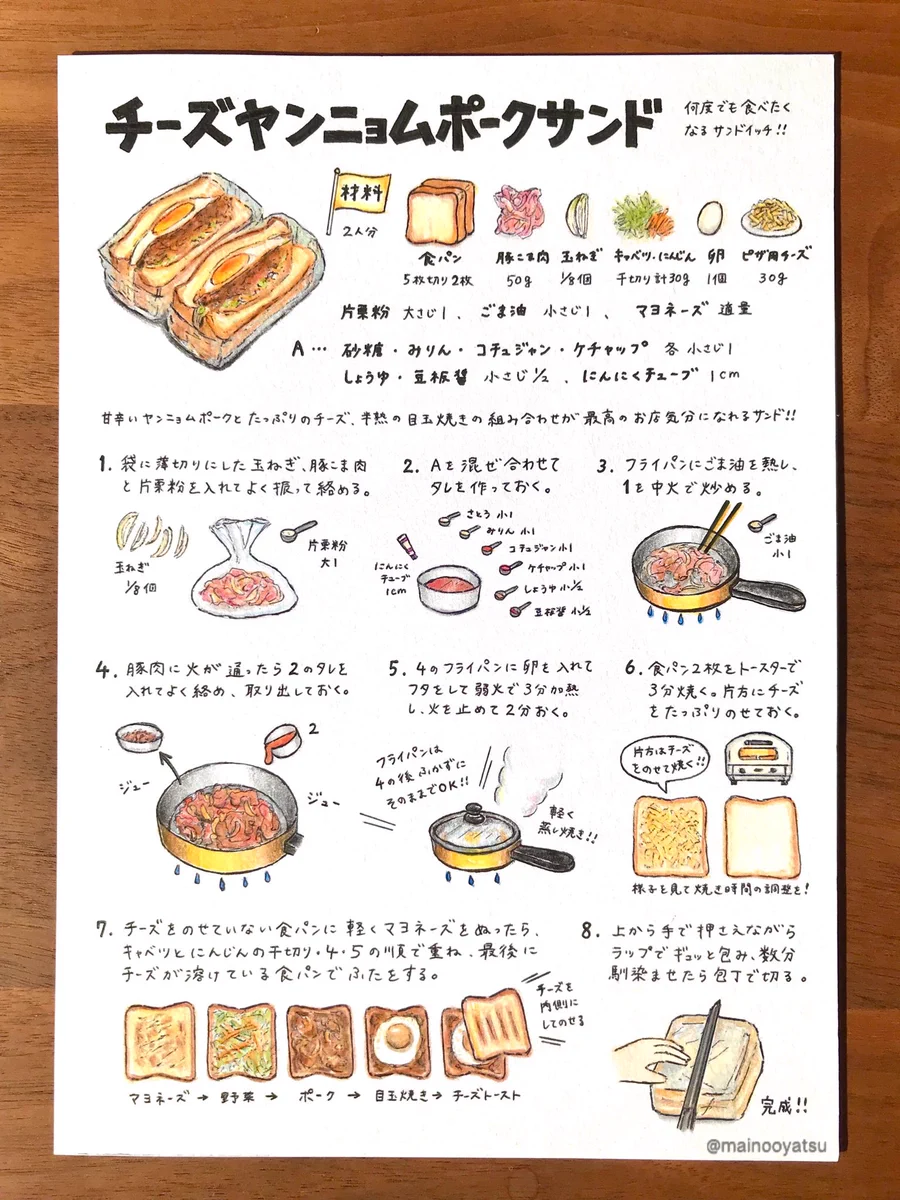 チーズヤンニョムポークサンド
何度でも食べたく
なるサンドイッチ!!
材料
2人分
食パン
5枚切り2枚
豚こま肉
50g
玉ねぎ
1/8個
キャベツ・にんじん
千切り計30g
卵
1個
ピザ用チーズ
30g
片栗粉 大さじ1、ごま油 小さじ1、マヨネーズ 適量
A… 砂糖・みりん・コチュジャン・ケチャップ 各小さじ1
しょうゆ・豆板醤 小さじ1/2、にんにくチューブ 1cm
甘辛いヤンニョムポークとたっぷりのチーズ、半熟の目玉焼きの組み合わせが最高のお店気分になれるサンド!!
1. 袋に薄切りにした玉ねぎ、豚こま肉
と片栗粉を入れてよく振って絡める。
玉ねぎ
1/8個
片栗粉
大1
2. Aを混ぜ合わせて
タレを作っておく。
さとう 小1
みりん 小1
コチュジャン小1
ケチャップ 小1
しょうゆ 小1/2
豆板醤 小1/2
にんにく
チューブ
1cm
3. フライパンにごま油を熱し、
1を中火で炒める。
ごま油
小1
4. 豚肉に火が通ったら2のタレを
入れてよく絡め、取り出しておく。
2
ジュー
ジュー
5. 4のフライパンに卵を入れて
フタをして弱火で3分加熱
し、火を止めて2分おく。
フライパンは
4の後ふかずに
そのままでOK!!
軽く
蒸し焼き!!
6. 食パン2枚をトースターで
3分焼く。片方にチーズ
をたっぷりのせておく。
片方はチーズ
をのせて焼く!!
様子を見て焼き時間の調整を!
7. チーズをのせていない食パンに軽くマヨネーズをぬったら、
キャベツとにんじんの千切り・4・5の順で重ね、最後に
チーズが溶けている食パンでふたをする。
チーズを
内側に
してのせる
マヨネーズ → 野菜 → ポーク → 目玉焼き → チーズトースト
8. 上から手で押さえながら
ラップでギュッと包み、数分
馴染ませたら包丁で切る。
完成!!
@mainooyatsu